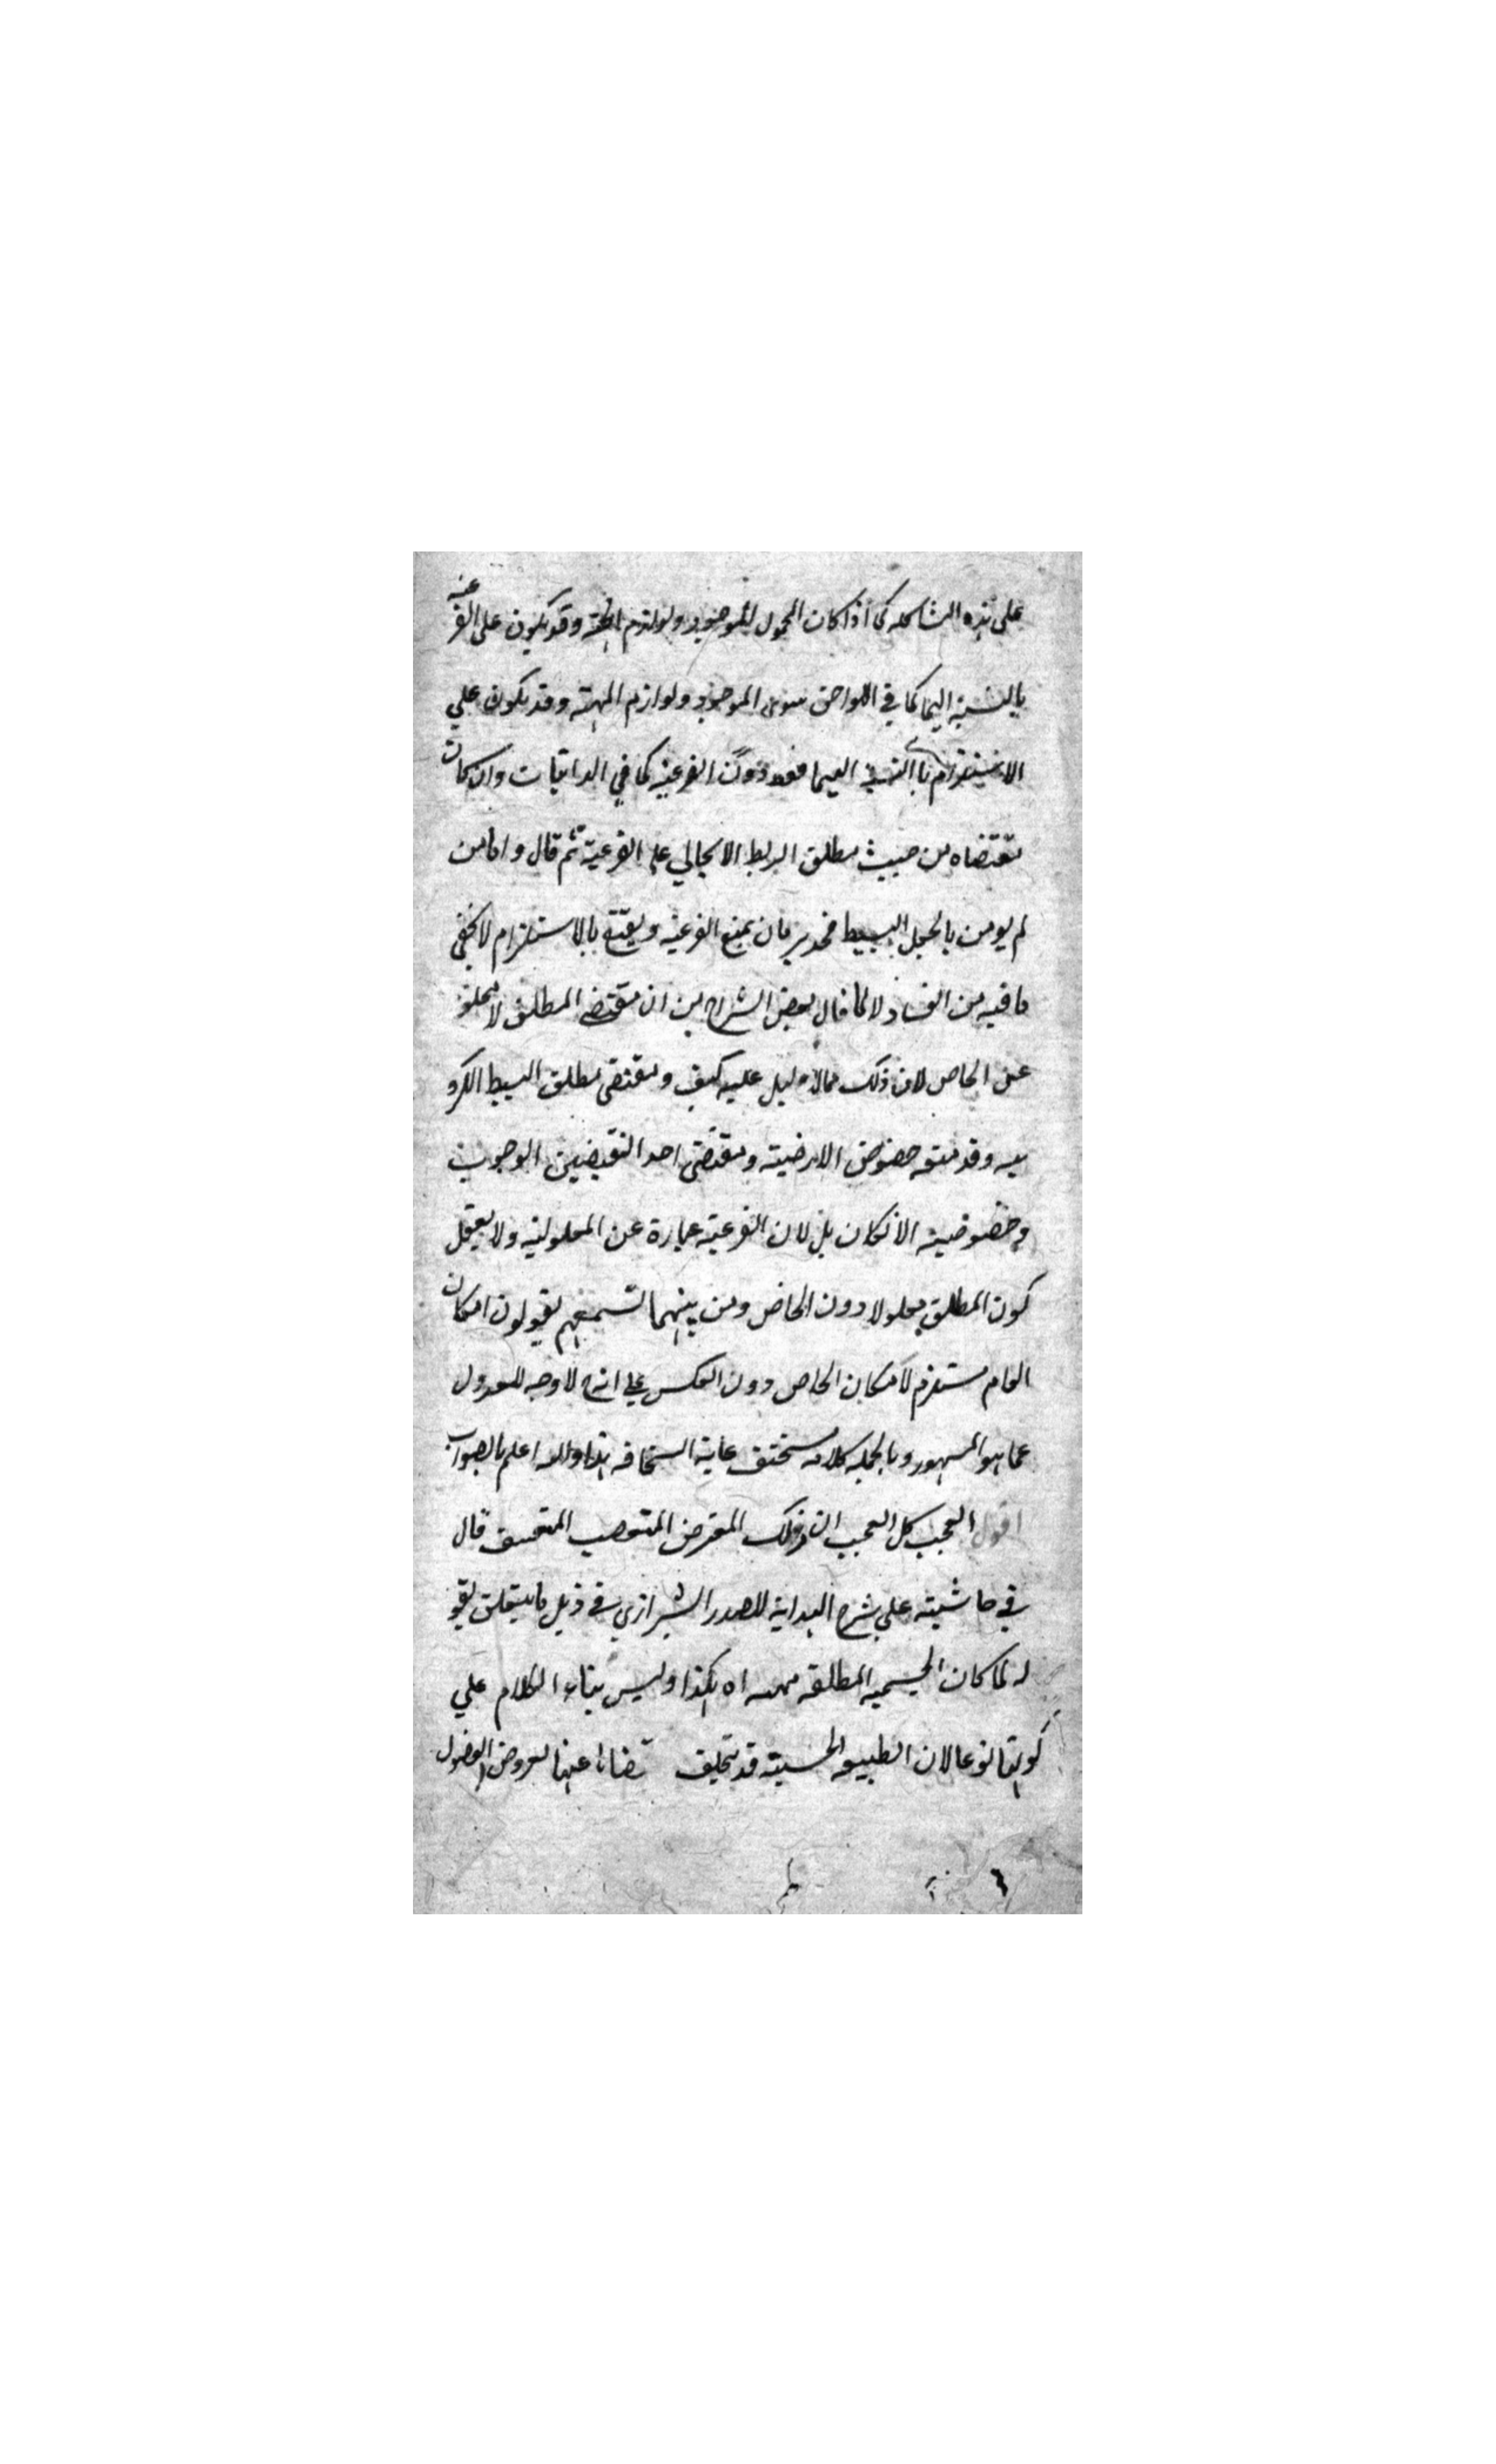 على هذه الشاكلة كما اذا كان المحمول الموجود ولوازم المهية وقد يكون على الفرعية
بالنسبة اليها كما في اللواحق سوى الموجود ولوازم المهية وقد يكون على
الاستلزام بالنسبة اليها فقط دون الفرعية كما في الذاتيات وان كان
مقتضاه من حيث مطلق الربط الايجابي على الفرعية ثم قال واما من
لم يومن بالجعل البسيط فجدير بان يمنع الفرعية ويقنع بالاستلزام لا يخفى
ما فيه من الفساد لا لما قال بعض الشراح من ان مقتضى المطلق لا يتخلف
عن الخاص لان ذلك مما لا دليل عليه كيف ومقتضى مطلق البسيط الكرو
ية وقد منعه خصوص الارضية ومقتضى احد النقيضين الوجوب
وخصوصية الامكان بل لان الفرعية عبارة عن المعلولية ولا يعقل
كون المطلق معلولا دون الخاص ومن بينهما تسمعهم يقولون امكان
العام مستلزم لامكان الخاص دون العكس على انه لا وجه للعدول
عما هو المشهور وبالجملة كلامه سخيف غاية السخافة هذا والله اعلم بالصواب
اقول العجب كل العجب ان ذلك المعترض المتعصب المتعسف قال
في حاشيته على شرح الهداية للصدر الشيرازي في ذيل ما يتعلق بقو
له لما كان الجسمية المطلقة اه هكذا وليس بناء الكلام على
كونها نوعا لان الطبيعة الجنسية قد يتخلف عنها لعروض الفصول